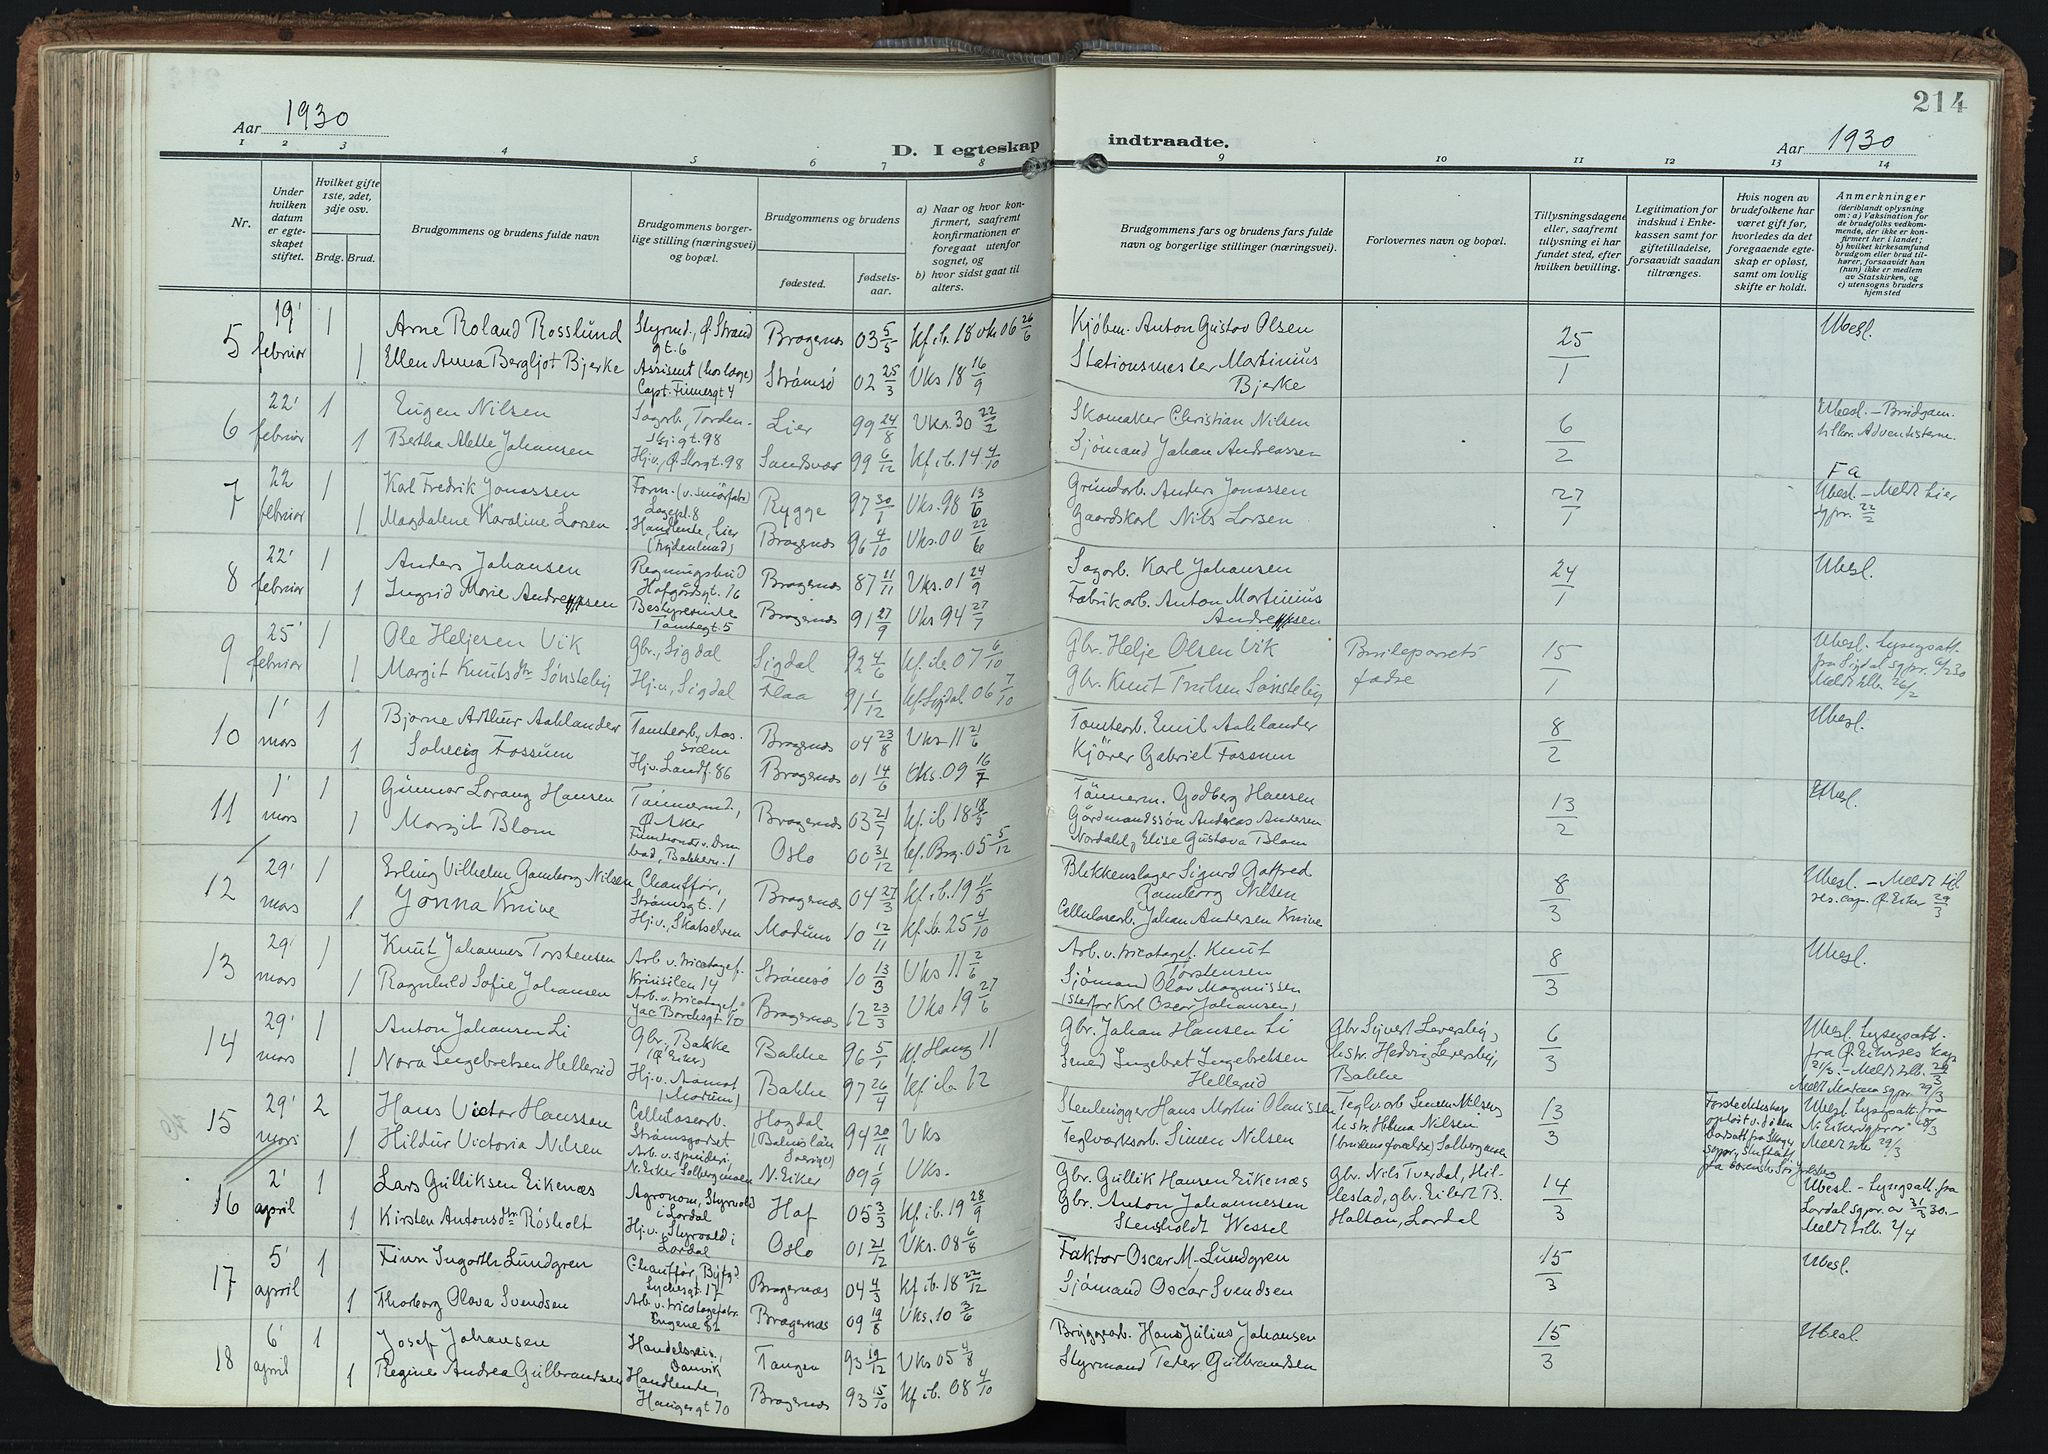 214
Aar 1930
D. I egteskap indtraadte.
Aar 1930
1 2 3 4 5 6 7 8 9 10 11 12 13 14
Nr.
Under hvilken datum er egteskapet stiftet.
Hvilket gifte 1ste, 2det, 3dje osv.
Brdg. Brud.
Brudgommens og brudens fulde navn
Brudgommens borgerlige stilling (næringsvei) og bopæl.
Brudgommens og brudens
fødested.
fødselsaar.
a) Naar og hvor konfirmert, saafremt konfirmationen er foregaat utenfor sognet, og
b) hvor sidst gaat til alters.
Brudgommens fars og brudens fars fulde navn og borgerlige stillinger (næringsvei).
Forlovernes navn og bopæl.
Tillysningsdagene eller, saafremt tillysning ei har fundet sted, efter hvilken bevilling.
Legitimation for indskud i Enkekassen samt for giftetilladelse, forsaavidt saadan tiltrænges.
Hvis nogen av brudefolkene har været gift før, hvorledes da det foregaaende egteskap er opløst, samt om lovlig skifte er holdt.
Anmerkninger
(deriblandt oplysning om: a) Vaksination for de brudefolks vedkommende, der ikke er konfirmert her i landet;
b) hvilket kirkesamfund brudgom eller brud tilhører, forsaavidt han (hun) ikke er medlem av Statskirken, og
c) utensogns bruders hjemsted
5 19' februar 1 Arne Roland Rosslund Styrmd., Ø. Strandgt. 6 Bragernes 03 5/5 Kf. ib. 18 vks 06 26/6 Kjøbm. Anton Gustav Olsen 25/1 Ubesl.
1 Ellen Anna Bergljot Bjerke Assisent (hos læge) Capt. Finnesgt 4 Strømsø 02 25/3 Vks 18 16/9 Stationsmester Martinius Bjerke
6 22' februar 1 Eugen Nilsen Sagarb., Tordenskj.gt. 98 Lier 99 24/8 Vks. 30 22/2 Skomaker Christian Nilsen 6/2 Ubesl. – Brudgom. tilhør. Adventisterne.
1 Bertha Alette Johansen Hj.v., Ø. Storgt. 98 Sandsvær 99 6/12 Kf. ib. 14 4/10 Sjømand Johan Andreassen
7 22 februar 1 Karl Fredrik Jonassen Form. (v. smörfabr.) Lagepl. 8 Rygge 97 30/1 Vks. 98 13/6 Grundarb. Anders Jonassen 27/1 Fa Ubesl. – Meldt Lier sgpr. 22/2
1 Magdalene Karoline Larsen Handlende, Lier Bragernes 96 4/10 Vks. 00 22/6 Gaardskarl Nils Larsen
8 22' februar 1 Anders Johansen Regningsbud Hafgårdsgt. 16 Bragernes 87 11/11 Vks. 01 24/9 Sagarb. Karl Johansen 24/1 Ubesl.
1 Ingrid Marie Andreassen Bestyrerinde Tomtegt. 5 Bragernes 91 27/9 Vks 94 27/7 Fabrikarb. Anton Martinius Andreassen
9 25' februar 1 Ole Heljesen Vik Gbr., Sigdal Sigdal 92 4/6 Kf. ib 07 6/10 Gbr. Helje Olsen Vik Brudeparrets fædre 15/1 Ubesl. Lysngsatt. fra Sigdal sgpr.
1 Margit Knutsdtr Sønsteby Hj.v., Sigdal Flaa 91 1/12 Kf. Sigdal 06 7/10 Gbr. Knut Trulsen Sønsteby Meldt tilb. 26/2
10 1' mars 1 Bjarne Arthur Aahlander Tomtearb., Aassiden Bragernes 04 23/8 Vks 11 21/6 Tomtearb. Emil Aahlander 8/2 Ubesl.
1 Solveig Fossum Hj.v. Landf. 86 Bragernes 01 14/6 Vks. 09 16/7 Kjörer Gabriel Fossum
11 1' mars 1 Gunnar Lorang Hansen Tömmermd., Ø. Aker Bragernes 03 21/7 Kf. ib 18 18/5 Tömmerm. Godberg Hansen 13/2 Ubesl.
1 Margit Blom Bakkern. 1 Oslo 00 31/12 Kf. Brg. 05 5/12 Gårdmandssön Andreas Andersen Nordahl, Elise Gustava Blom
12 29' mars 1 Erling Vilhelm Gamborg Nilsen Chauffør, Strømsgt. 1 Bragernes 04 27/3 Kf. ib. 19 11/5 Blikkenslager Sigurd Gotfred Gamborg Nilsen 8/3 Ubesl. – Meldt til res. cap. Ø. Eiker 29/3
1 Jonna Knive Hj.v., Skotselven Modum 10 12/11 Kf. ib. 25 4/10 Cellulosearb. Johan Andersen Knive
13 29' mars 1 Knut Johannes Torstensen Arb. v. tricotagef. 14 Strømsø 10 13/3 Vks 11 2/6 Arb. v. tricotagef. Knut Torstensen 8/3 Ubesl.
1 Ragnhild Sofie Johansen Arb. v. tricotagef. Jac Borchsgt. 10 Bragernes 12 23/3 Vks 19 27/6 Sjömand Olav Magnussen (Stefar Karl Oscar Johansen)
14 29' mars 1 Anton Johansen Li Gbr., Bakke (Ø. Eiker) Bakke 96 5/1 Kf. Haug 11 Gbr. Johan Hansen Li Gbr Sivert Leversby, 6/3 Ubesl. Lysngsatt. fra Ø. Eikers kap 21/3. – Meldt tilb. 29/3
1 Nora Ingebretsen Hellerud Hj.v., Aamot (Modum) Bakke 97 26/4 Kf ib. 12 Smed Ingebret Ingebretsen Hellerud hustr. Hedvig Leversby, Bakke Meldt Modum sgpr 29/3
15 29' mars 2 Hans Victor Hansson Cellulosearb. Strømsgodset Hogdal Sverige) 94 20/11 Vks Stenhugger Hans Martin Olaussen Teglv.arb Simen Nilsen, 13/3 Ubesl. Lysngsatt. fra N. Eiker sgpr 28/3
1 Hildur Victoria Nilsen Arb. v. spinderi, N. Eiker Solbergmoen N. Eiker 09 1/9 Vks. Teglverksarb. Simen Nilsen hustr. Helma Nilsen (brudens forældre) Solbergmoen Meldt tilb 29/3
16 2' april 1 Lars Gulliksen Eikenæs Agronom, Styrvold i Lardal Hof 05 3/3 Kf. ib. 19 28/9 Gbr. Gullik Hansen Eikenæs Gbr. Nils Tveidal, Hillestad, gbr. Eilert B. 14/3 Ubesl – Lysngsatt. fra Lardal sgpr. av 31/3 30. –
1 Kirsten Antonsdtr Rösholt Hj.v., Styrvold i Lardal Oslo 01 21/12 Vks. 08 6/8 Gbr. Anton Johannessen Stensholdt Wessel Holtan, Lardal Meldt tilb. 2/4
17 5' april 1 Finn Ingarth Lundgren Chauffør, Lychesgt. 17 Bragernæs 04 4/3 Kf. ib. 18 22/12 Faktor Oscar M. Lundgren 15/3 Ubesl.
1 Thorborg Olava Svendsen Arb. v. tricotagefabr. Engene 81 Bragernæs 09 19/8 Vks. 10 3/6 Sjömand Oscar Svendsen
18 6' april 1 Josef Johansen Handelsreis., Danvik Tangen 93 19/12 Vks 05 4/8 Bryggearb. Hans Julius Johansen 15/3 Ubesl
1 Regine Andrea Gulbrandsen Handlende, Haugesgt 70 Bragernes 93 15/10 Kf ib. 08 4/10 Styrmand Peder Gulbrandsen